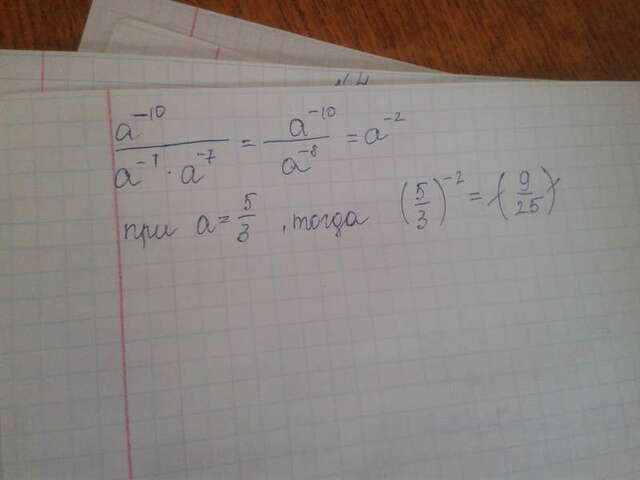 a⁻¹⁰/(a⁻¹ · a⁻⁷) = a⁻¹⁰/a⁻⁸ = a⁻²
при a = 5/3, тогда (5/3)⁻² = (9/25)